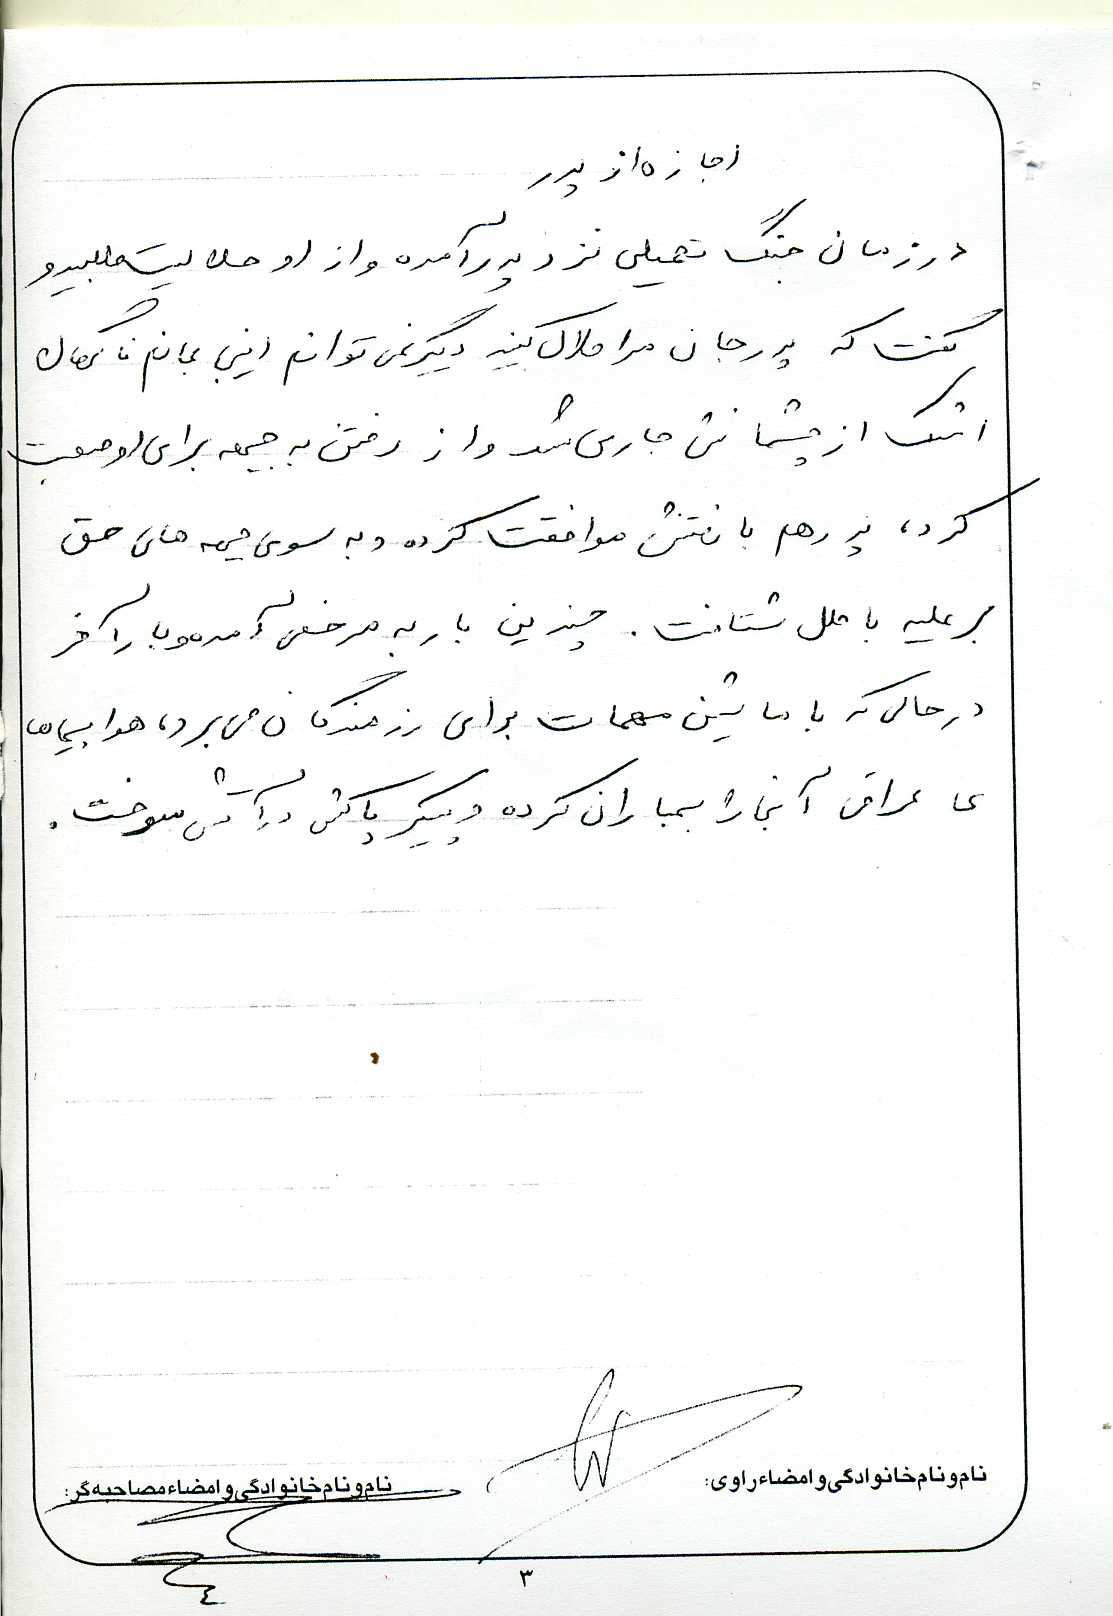 اجازه از پدر
در زمان جنگ تحمیلی نزد پدر آمده و از او حلالیت طلبید و
گفت که پدر جان مرا حلال کنید دیگر نمی توانم اینجا بمانم ناگهان
اشک از چشمانش جاری شد و از رفتن به جبهه برای او صحبت
کرد، پدر هم با رفتنش موافقت کرده و به سوی جبهه های حق
بر علیه باطل شتافت. چندین بار به مرخصی آمده و بار آخر
در حالی که با ماشین مهمات برای رزمندگان می برد، هواپیماها
ی عراقی آنجا را بمباران کرده و پیکر پاکش در آتش سوخت.
نام و نام خانوادگی و امضاء راوی:
نام و نام خانوادگی و امضاء مصاحبه گر:
۳